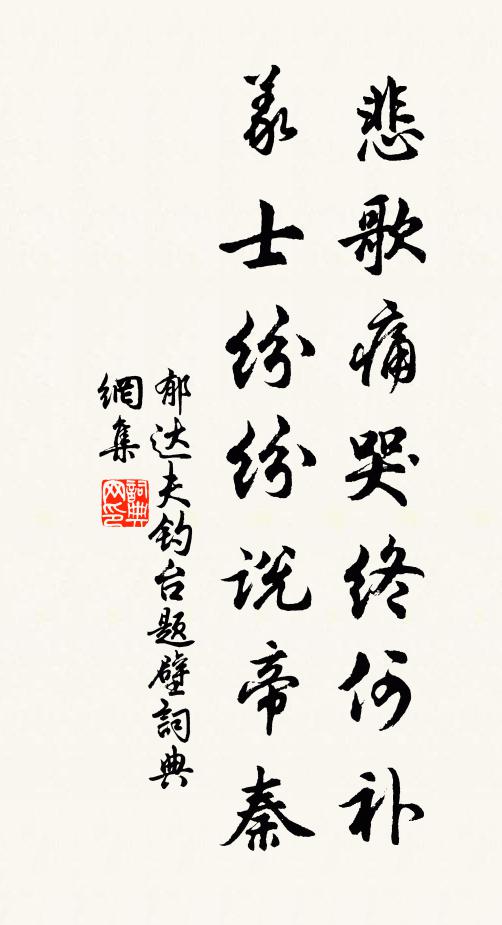 悲歌痛哭终何补
义士纷纷说帝秦
郁达夫钓台题壁詞典
網集
詞典網印